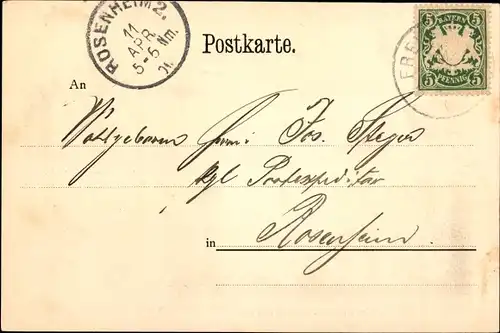 ROSENHEIM 2.
11
APR
5-6 Nm.
01.
Postkarte.
5 BAYERN 5
5 PFENNIG 5
An
Wohlgeboren Herrn Jos. Steger
kgl Postexpeditor
in Rosenheim.